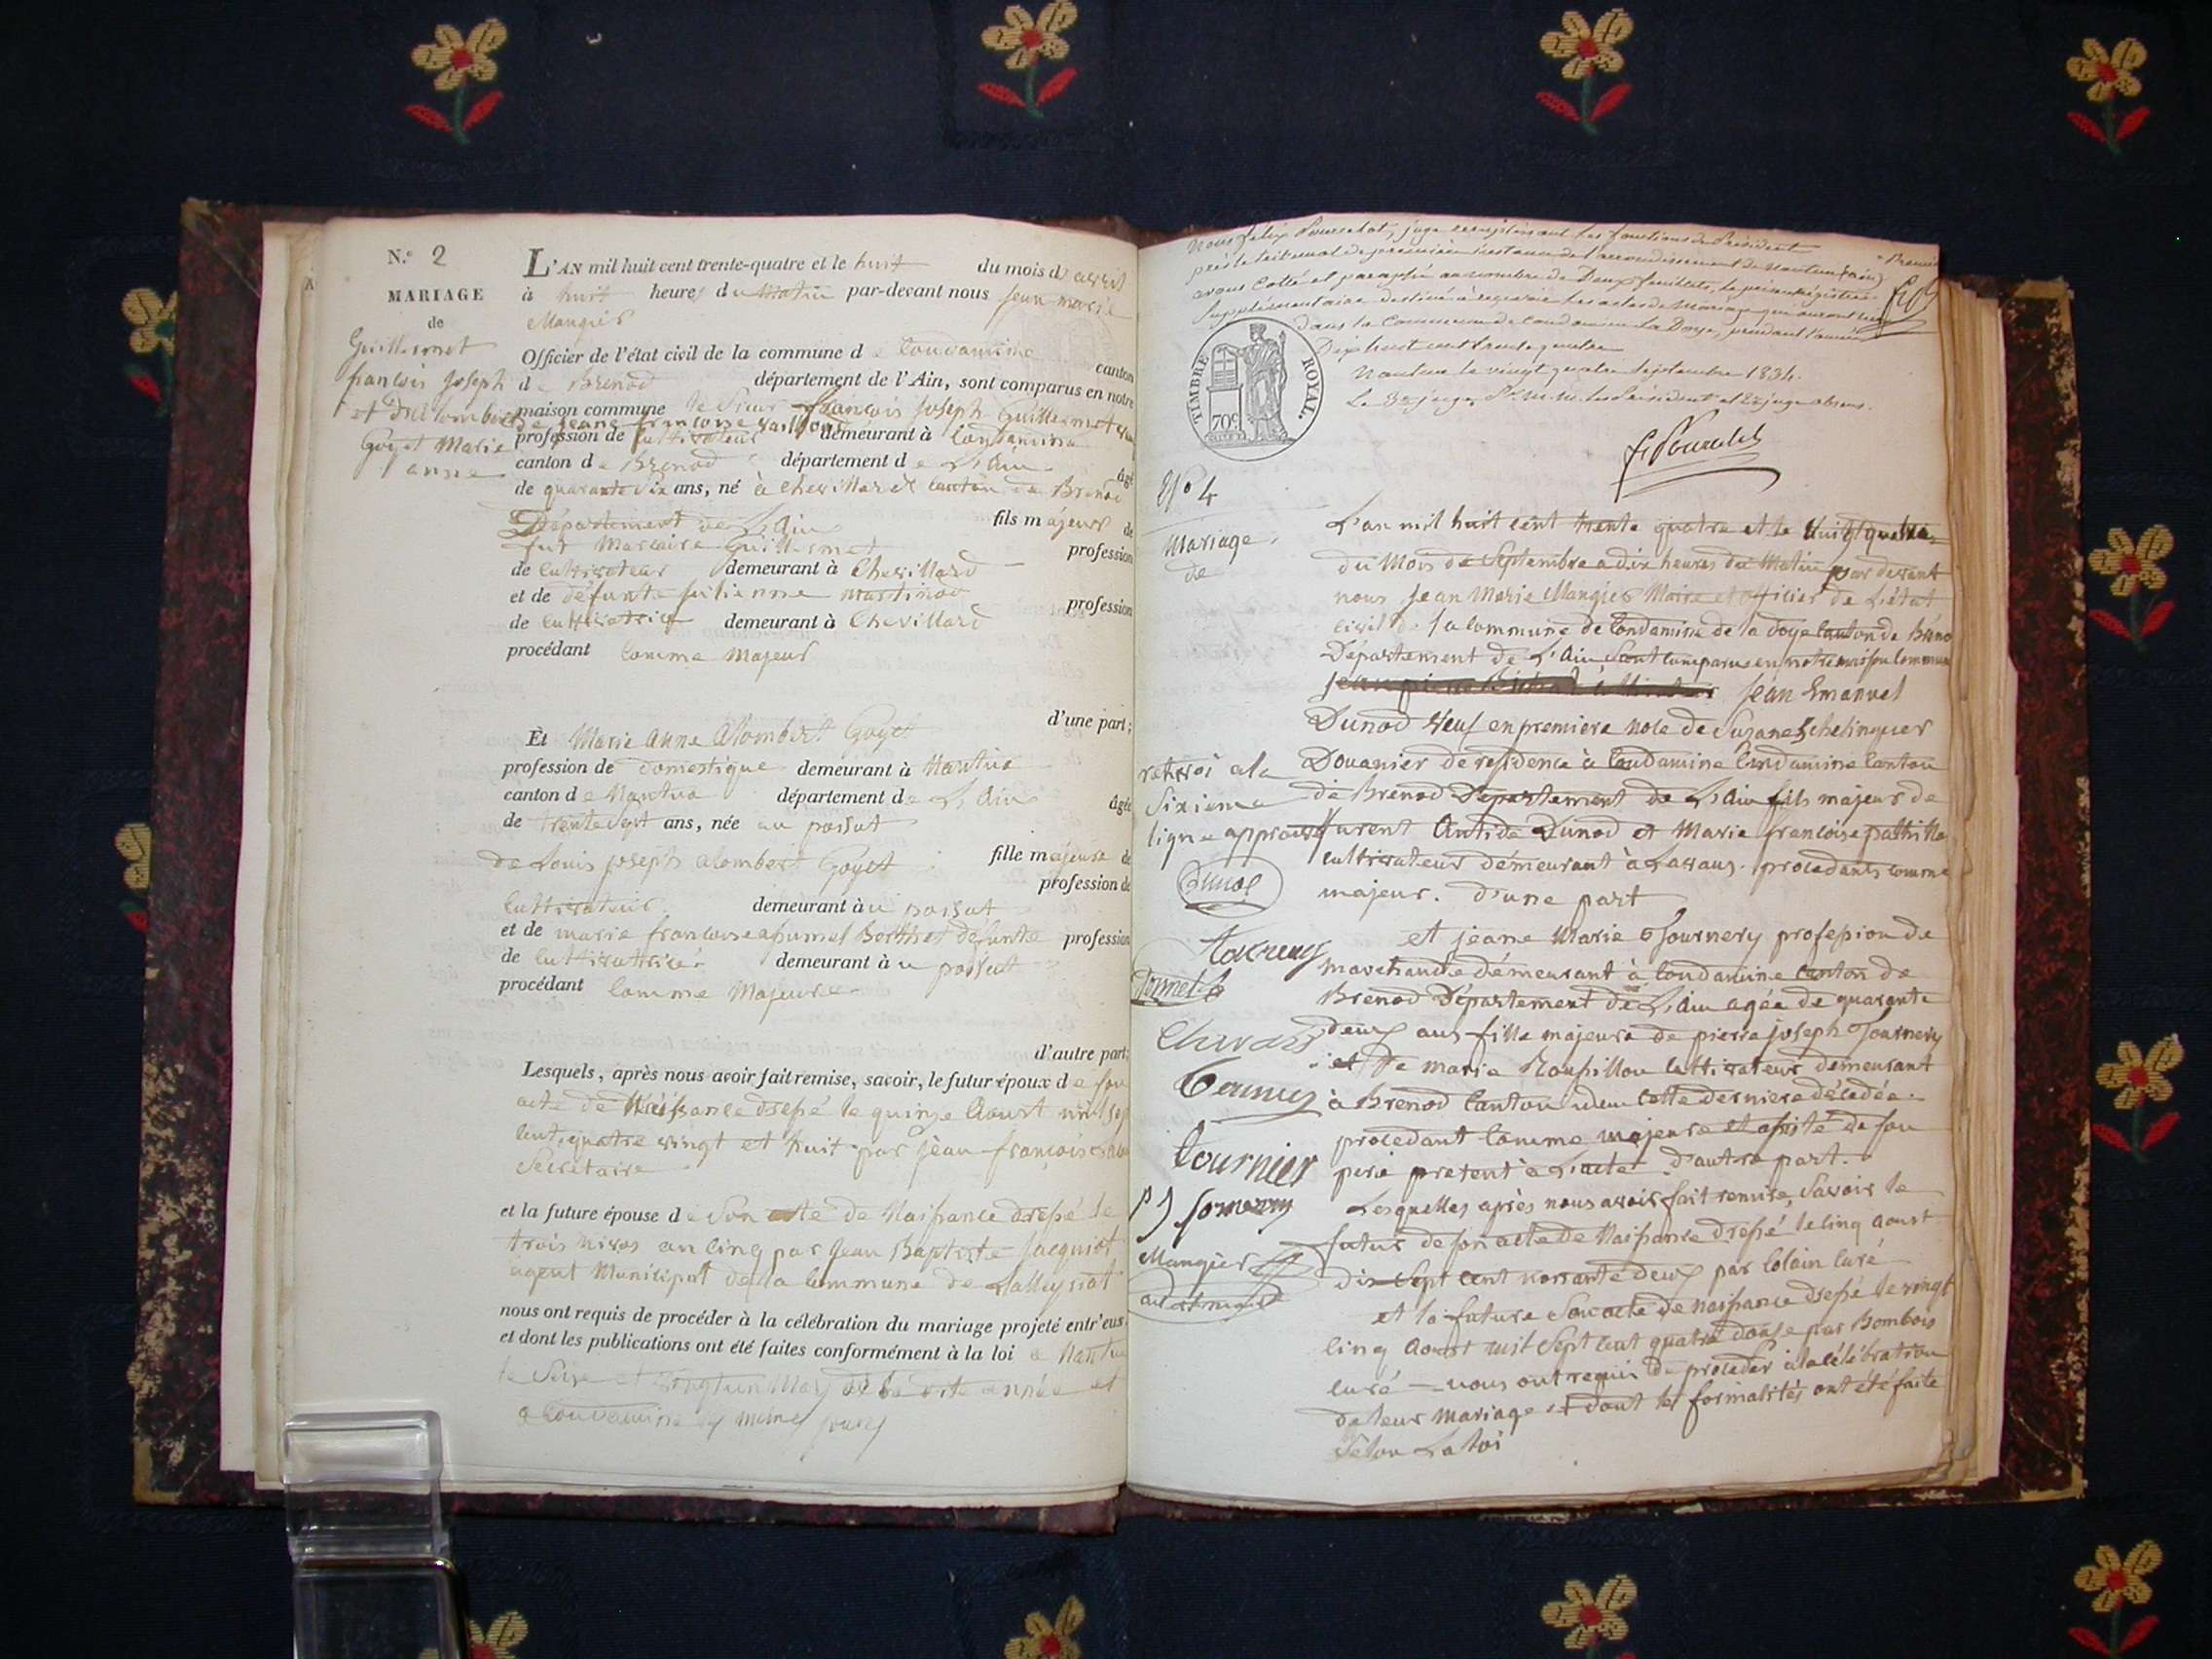 N.º 2
MARIAGE
de
Guillermet
françois joseph
et Alombert
Goyet Marie
anne
L'AN mil huit cent trente-quatre et le huit du mois d'avril
à huit heures du Matin par-devant nous Jean marie
Mangier
Officier de l'état civil de la commune de Condamine canton
de Brenod département de l'Ain, sont comparus en notre
maison commune le sieur françois joseph Guillermet
de jeanne francoise
profession de cultivateur demeurant à Condamine
canton de Brenod département de L'Ain âgé
de quarante six ans, né à Chevillard canton de Brenod
Département de L'Ain fils majeur de
fut Guillermet profession
de cultivateur demeurant à Chevillard
et de défunte julienne Martinod profession
de cultivatrice demeurant à Chevillard
procédant comme Majeur
d'une part;
Et Marie Anne Alombert Goyet
profession de domestique demeurant à Nantua
canton de Nantua département de L'Ain âgée
de trente sept ans, née au poisat
de Louis joseph alombert Goyet fille majeure de
profession de
cultivateur demeurant au poisat
et de marie francoise Berthet défunte profession
de cultivatrice demeurant au poisat
procédant comme Majeure
d'autre part;
Lesquels, après nous avoir fait remise, savoir, le futur époux de son
acte de Naissance dressé le quinze Aoust mil sept
cent quatre vingt et huit par jean francois
Secrétaire
et la future épouse de son acte de Naissance dressé le
trois Nivos an cinq par Jean Baptiste Jacquiot
agent Municipal de la Commune de Lalleyriat
nous ont requis de procéder à la célébration du mariage projeté entr'eux
et dont les publications ont été faites conformément à la loi à Nantua
le Seize et vingt un Mars de année et
a Condamine les mêmes jours
Nous félix Pourcelot, juge remplissant les fonctions de Président
près le tribunal de première instance de l'arrondissement de Nantua (ain)
avons Cotté et paraphé au nombre de Deux feuillets, le présent Régistre
Supplémentaire destiné à recevoir les actes de Mariage qui auront lieu
dans la Commune de Condamine La Doye, pendant l'année
Dix huit cent trente quatre
Nantua le vingt quatre Septembre 1834.
TIMBRE ROYAL.
70c
N° 4
Mariage
de
L'an mil huit cent trente quatre et le vingt quatre
du Mois de Septembre a dix heures du Matin par devant
nous Jean Marie Mangier Maire et officier de L'état
civil de la Commune de Condamine de la doye Canton de Breno
Département de L'Ain Sont comparus en notre maison Commune
Jean Emanuel
Dunod Veuf en premiere Noce de Suzane Schelinquer
Douanier de résidence à Condamine Condamine Canton
de Brenod Département de L'Ain fils majeur de
furent Antide Dunod et Marie francoise
cultivateur démeurant à procedants comme
majeur. d'une part
renvoi a la
Sixieme
ligne approuvé
Dunod
et jeane Marie Tournery profession de
marchande démeurant à Condamine Canton de
Brenod Département de L'Ain agée de quarante
deux ans fille majeure de pierre joseph Tournery
et de marie Roupillon cultivateur démeurant
à Brenod Canton idem cette derniere décédée.
procedant comme majeure et assité de son
peré present à L'acte d'autre part.
tournier
Mangier
Lesquelles après nous avoir fait remise, Savoir le
futur de son acte de Naissance dressé le cinq aoust
dix Sept cent nonante deux par Colain Curé
et la future Son acte de Naissance dressé le vingt
cinq Aoust mil Sept cent quatre douse par Bombois
curé — nous ont requis de proceder à la célébration
de leur Mariage et dont les formalités ont été faite
Selon La loi